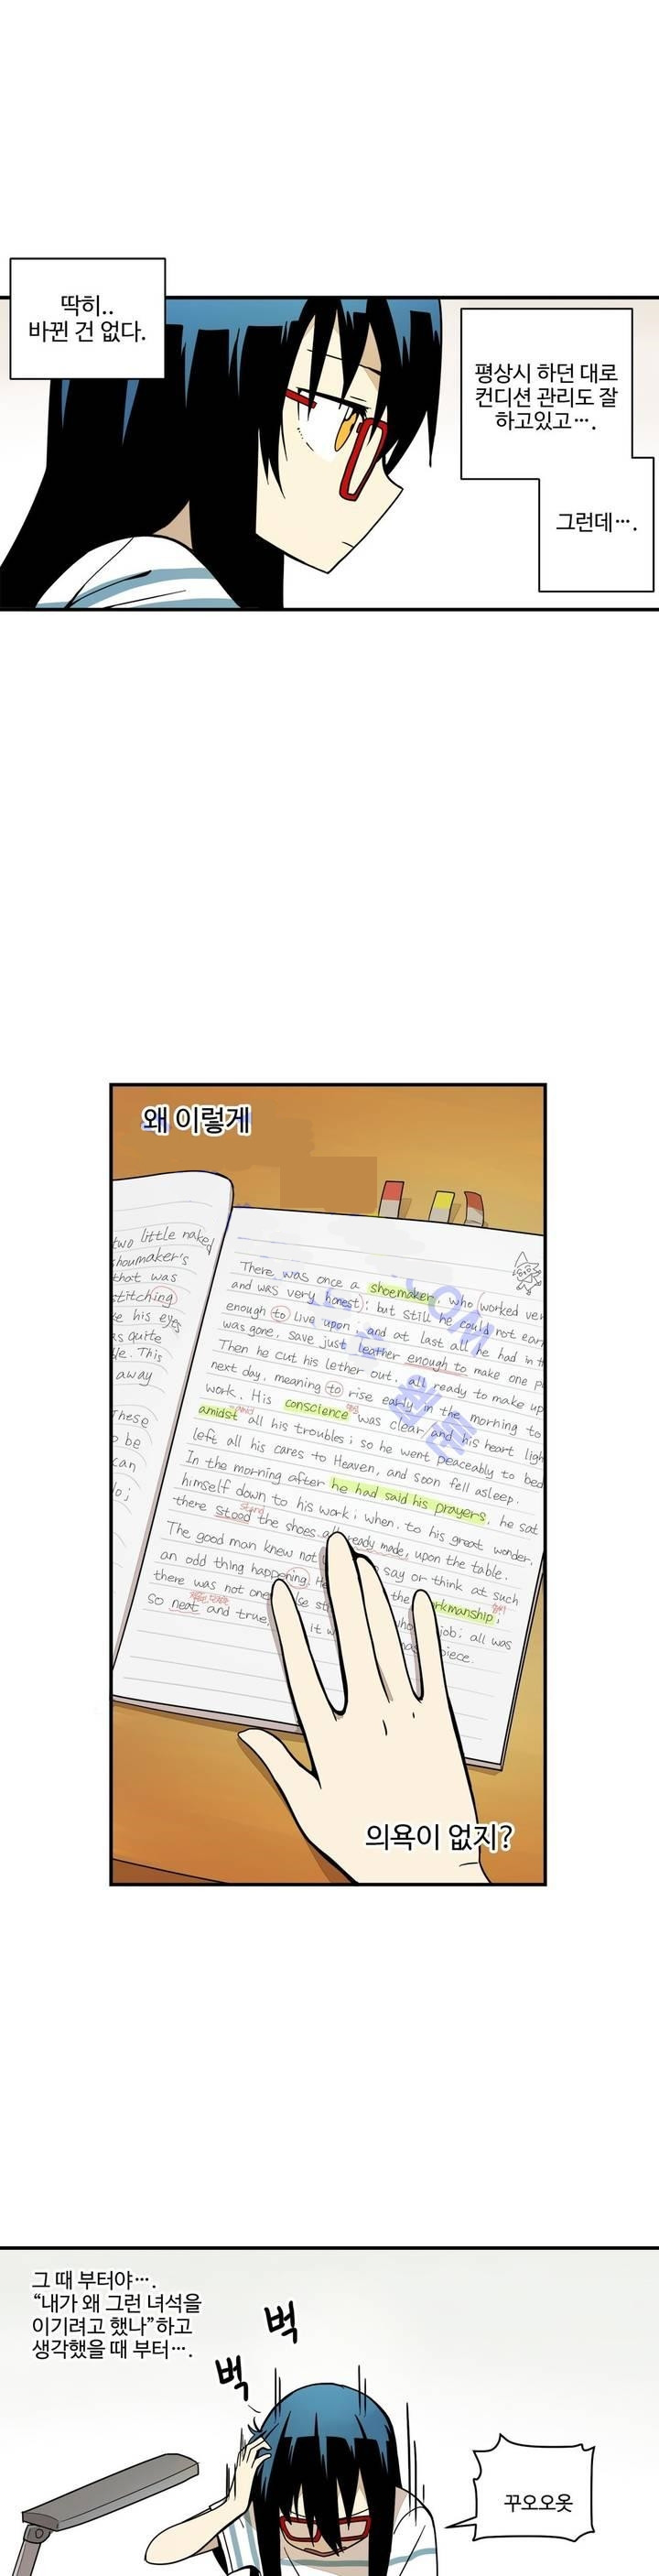 딱히..
바뀐 건 없다.
평상시 하던 대로
컨디션 관리도 잘
하고있고….
그런데….
왜 이렇게
two little naked
shoumaker's
that was
stitching
his eyes
as quite
This
away
These
be
can
There was once a shoemaker, who (worked ver
and was very honest); but still he could not earn
enough to live upon; and at last all he had in th
was gone, save just leather enough to make one p
Then he cut his lether out, all ready to make up
next day, meaning to rise early in the morning to
work. His conscience was clear and his heart ligh
amidst all his troubles; so he went peaceably to bed
left all his cares to Heaven, and soon fell asleep.
In the morning after he had said his prayers, he sat
himself down to his work; when, to his great wonder,
there stood the shoes all ready made, upon the table.
The good man knew not say or think at such
an odd thing happening. the workmanship;
there was not one job: all was
so neat and true, it piece.
의욕이 없지?
그 때 부터야….
“내가 왜 그런 녀석을
이기려고 했나”하고
생각했을 때 부터….
벅
벅
꾸오오옷